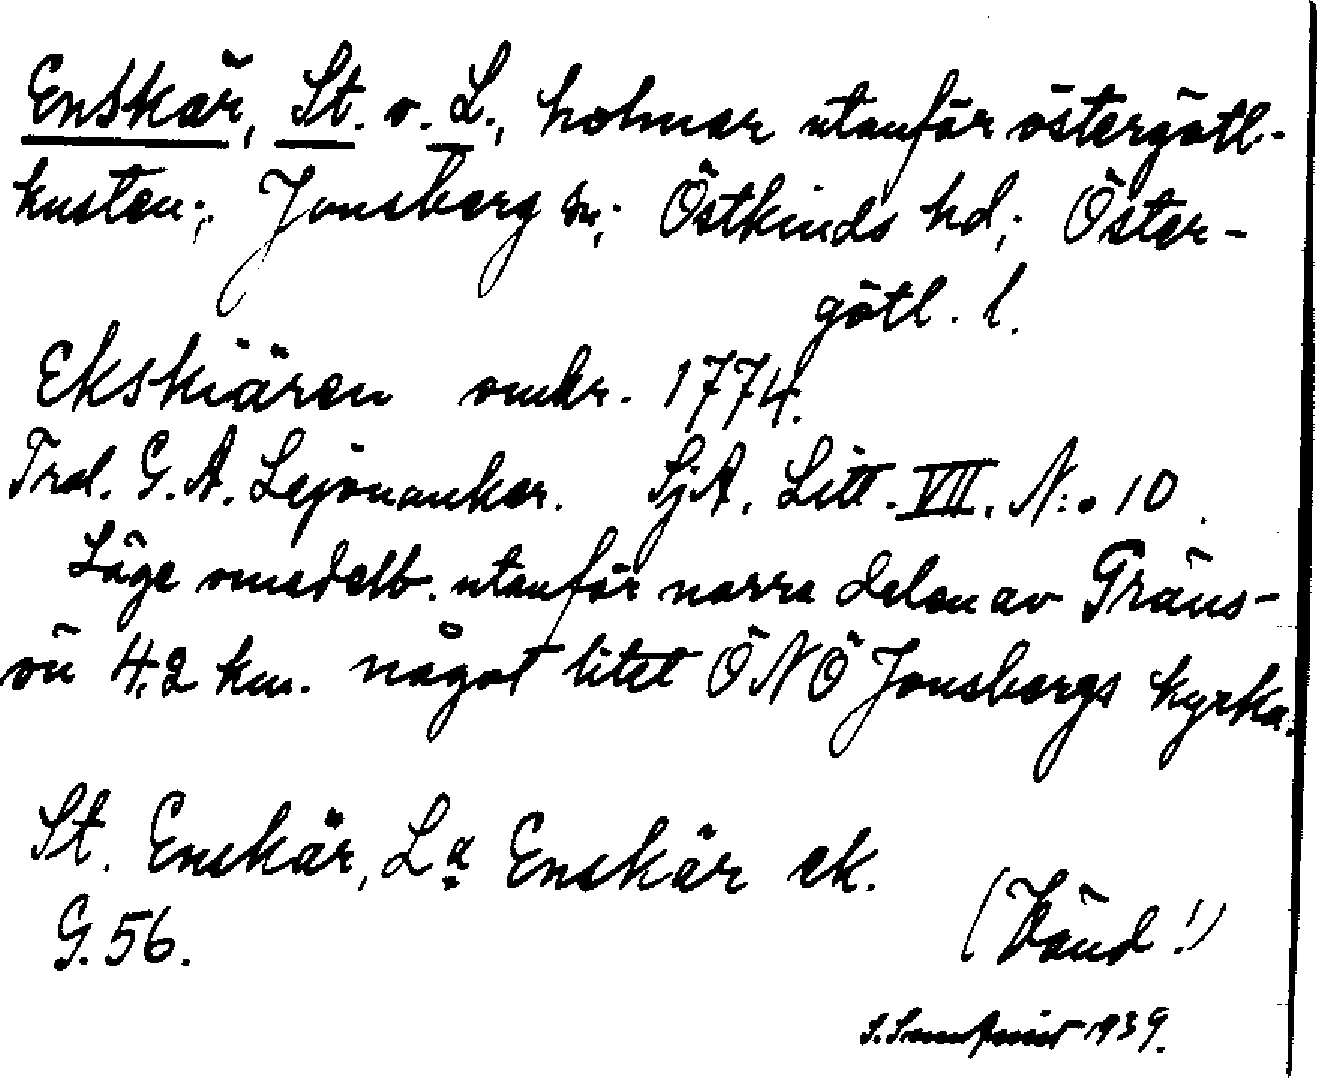 Enskär, St. o. L., holmar utanför östergötl-
kusten; Jonsberg sn; Östkinds hd; Öster-
götl. l.
Ekskiären omkr. 1774.
Trol. G. A. Lejonanker. SjA. Litt. VIII. N:o 10.
Läge omedelb. utanför norra delen av Gräns-
ön 4,2 km. något litet ÖNÖ Jonsbergs kyrka.
St. Enskär, La Enskär ek.
G. 56.
(Vänd!)
1939.